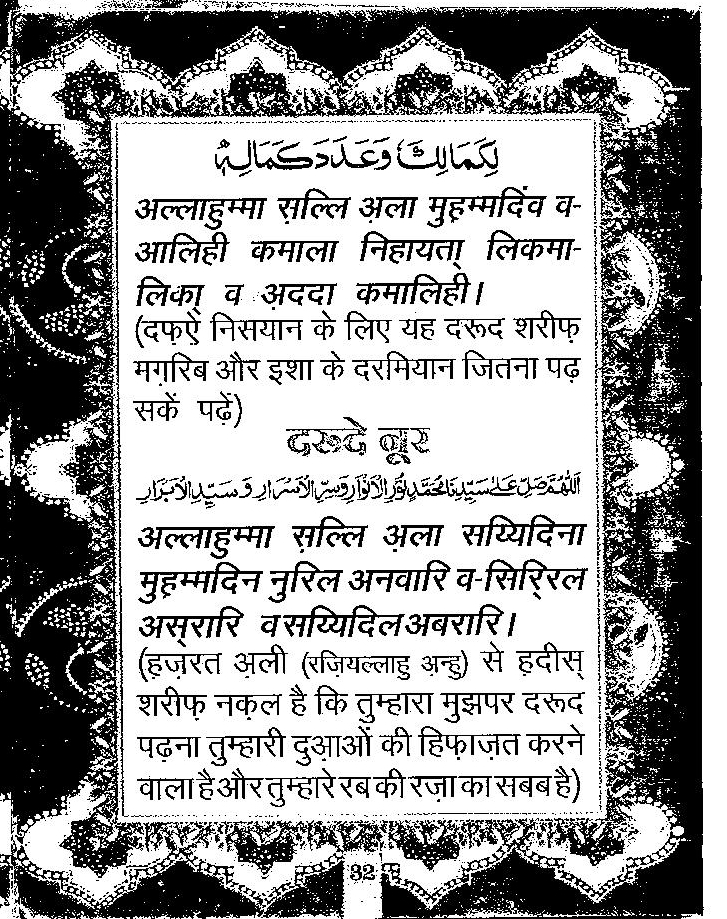 لِكَمَالِكَ وَعَدَدَ كَمَالِهٖ
अल्लाहुम्मा स़ल्लि अ़ला मुह़म्मदिंव व-
आलिही कमाला निहायता् लिकमा-
लिका् व अ़ददा कमालिही।
(दफ़ऐ निसयान के लिए यह दरूद शरीफ़
मग़रिब और इशा के दरमियान जितना पढ़
सकें पढ़ें)
दरूदे नूर
اَللّٰهُمَّ صَلِّ عَلٰى سَيِّدِنَا مُحَمَّدٍ نُوْرِ الْاَنْوَارِ وَسِرِّ الْاَسْرَارِ وَسَيِّدِ الْاَبْرَارِ
अल्लाहुम्मा स़ल्लि अ़ला सय्यिदिना
मुह़म्मदिन नुरिल अनवारि व-सिर्रिल
अस्रारि व सय्यिदिल अबरारि।
(ह़ज़रत अ़ली (रज़ियल्लाहु अ़न्हु) से ह़दीस्
शरीफ़ नक़ल है कि तुम्हारा मुझपर दरूद
पढ़ना तुम्हारी दुआ़ओं की हिफ़ाज़त करने
वाला है और तुम्हारे रब की रज़ा का सबब है)
32